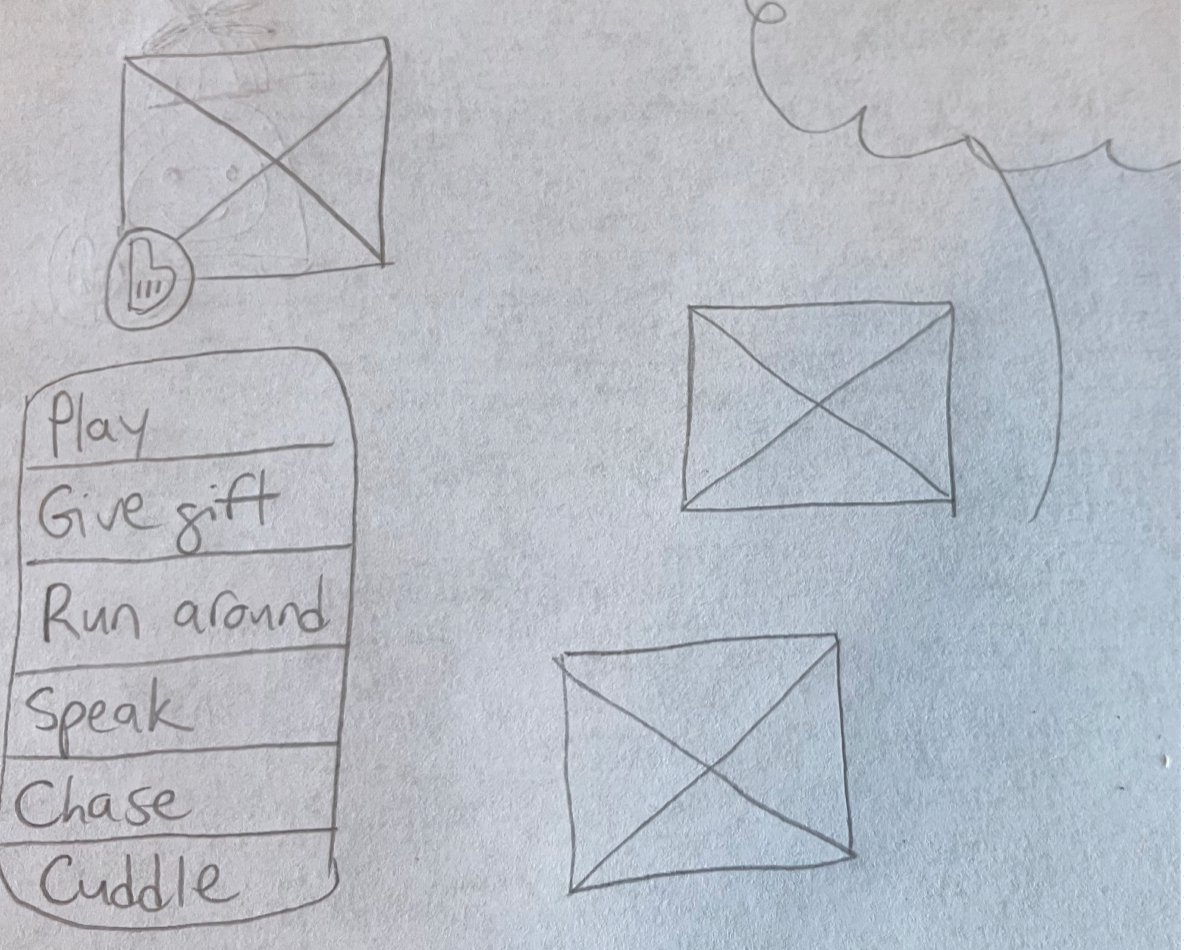 Play
Give gift
Run around
Speak
Chase
Cuddle